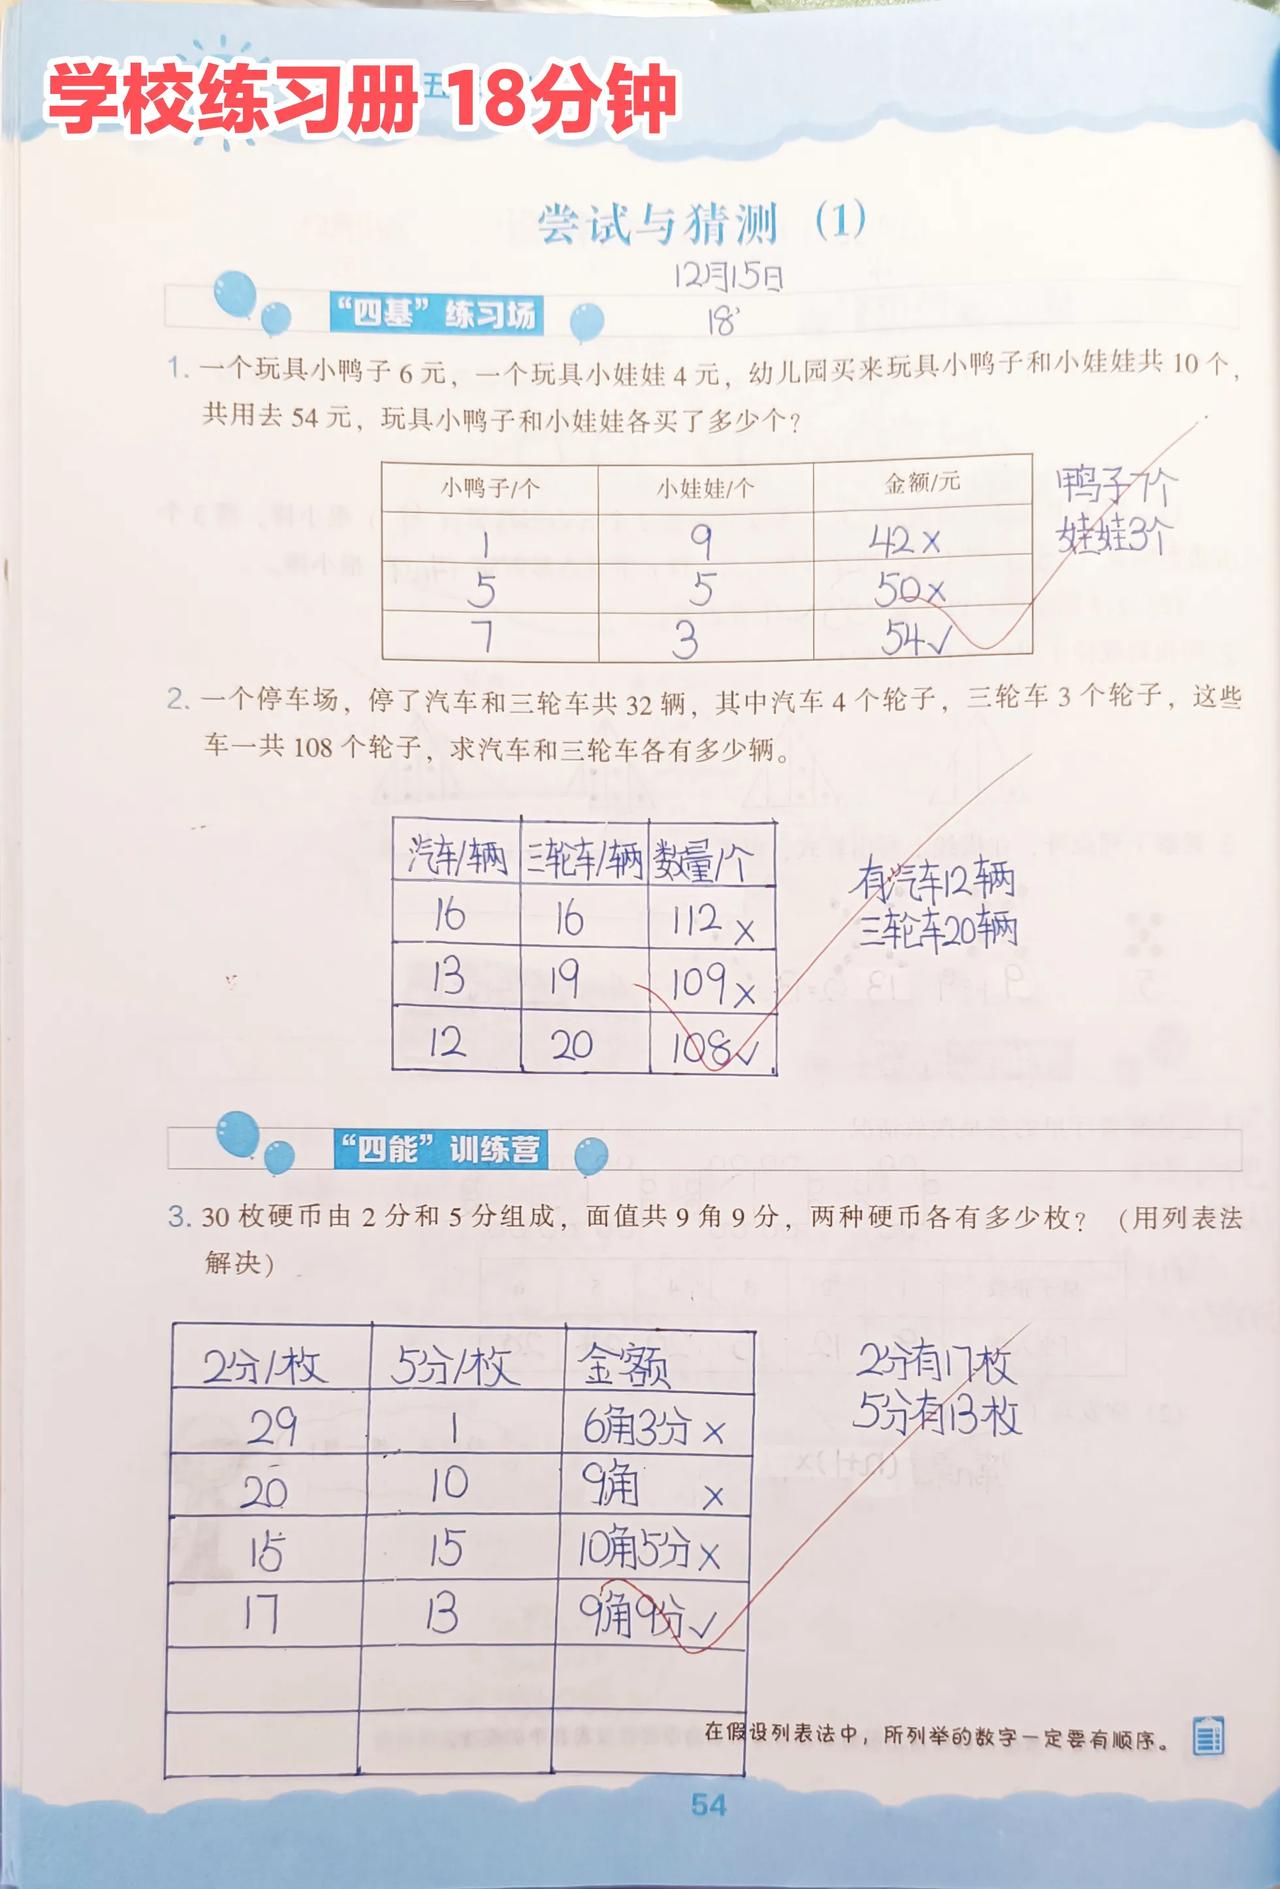 学校练习册 18分钟
五
尝试与猜测（1）
12月15日
18'
“四基”练习场
1. 一个玩具小鸭子6元，一个玩具小娃娃4元，幼儿园买来玩具小鸭子和小娃娃共10个，
共用去54元，玩具小鸭子和小娃娃各买了多少个？
小鸭子/个 小娃娃/个 金额/元
1 9 42×
5 5 50×
7 3 54✓
鸭子7个
娃娃3个
2. 一个停车场，停了汽车和三轮车共32辆，其中汽车4个轮子，三轮车3个轮子，这些
车一共108个轮子，求汽车和三轮车各有多少辆。
汽车/辆 三轮车/辆 数量/个
16 16 112×
13 19 109×
12 20 108✓
有汽车12辆
三轮车20辆
“四能”训练营
3. 30枚硬币由2分和5分组成，面值共9角9分，两种硬币各有多少枚？（用列表法
解决）
2分/枚 5分/枚 金额
29 1 6角3分×
20 10 9角 ×
15 15 10角5分×
17 13 9角9分✓
2分有17枚
5分有13枚
在假设列表法中，所列举的数字一定要有顺序。
54